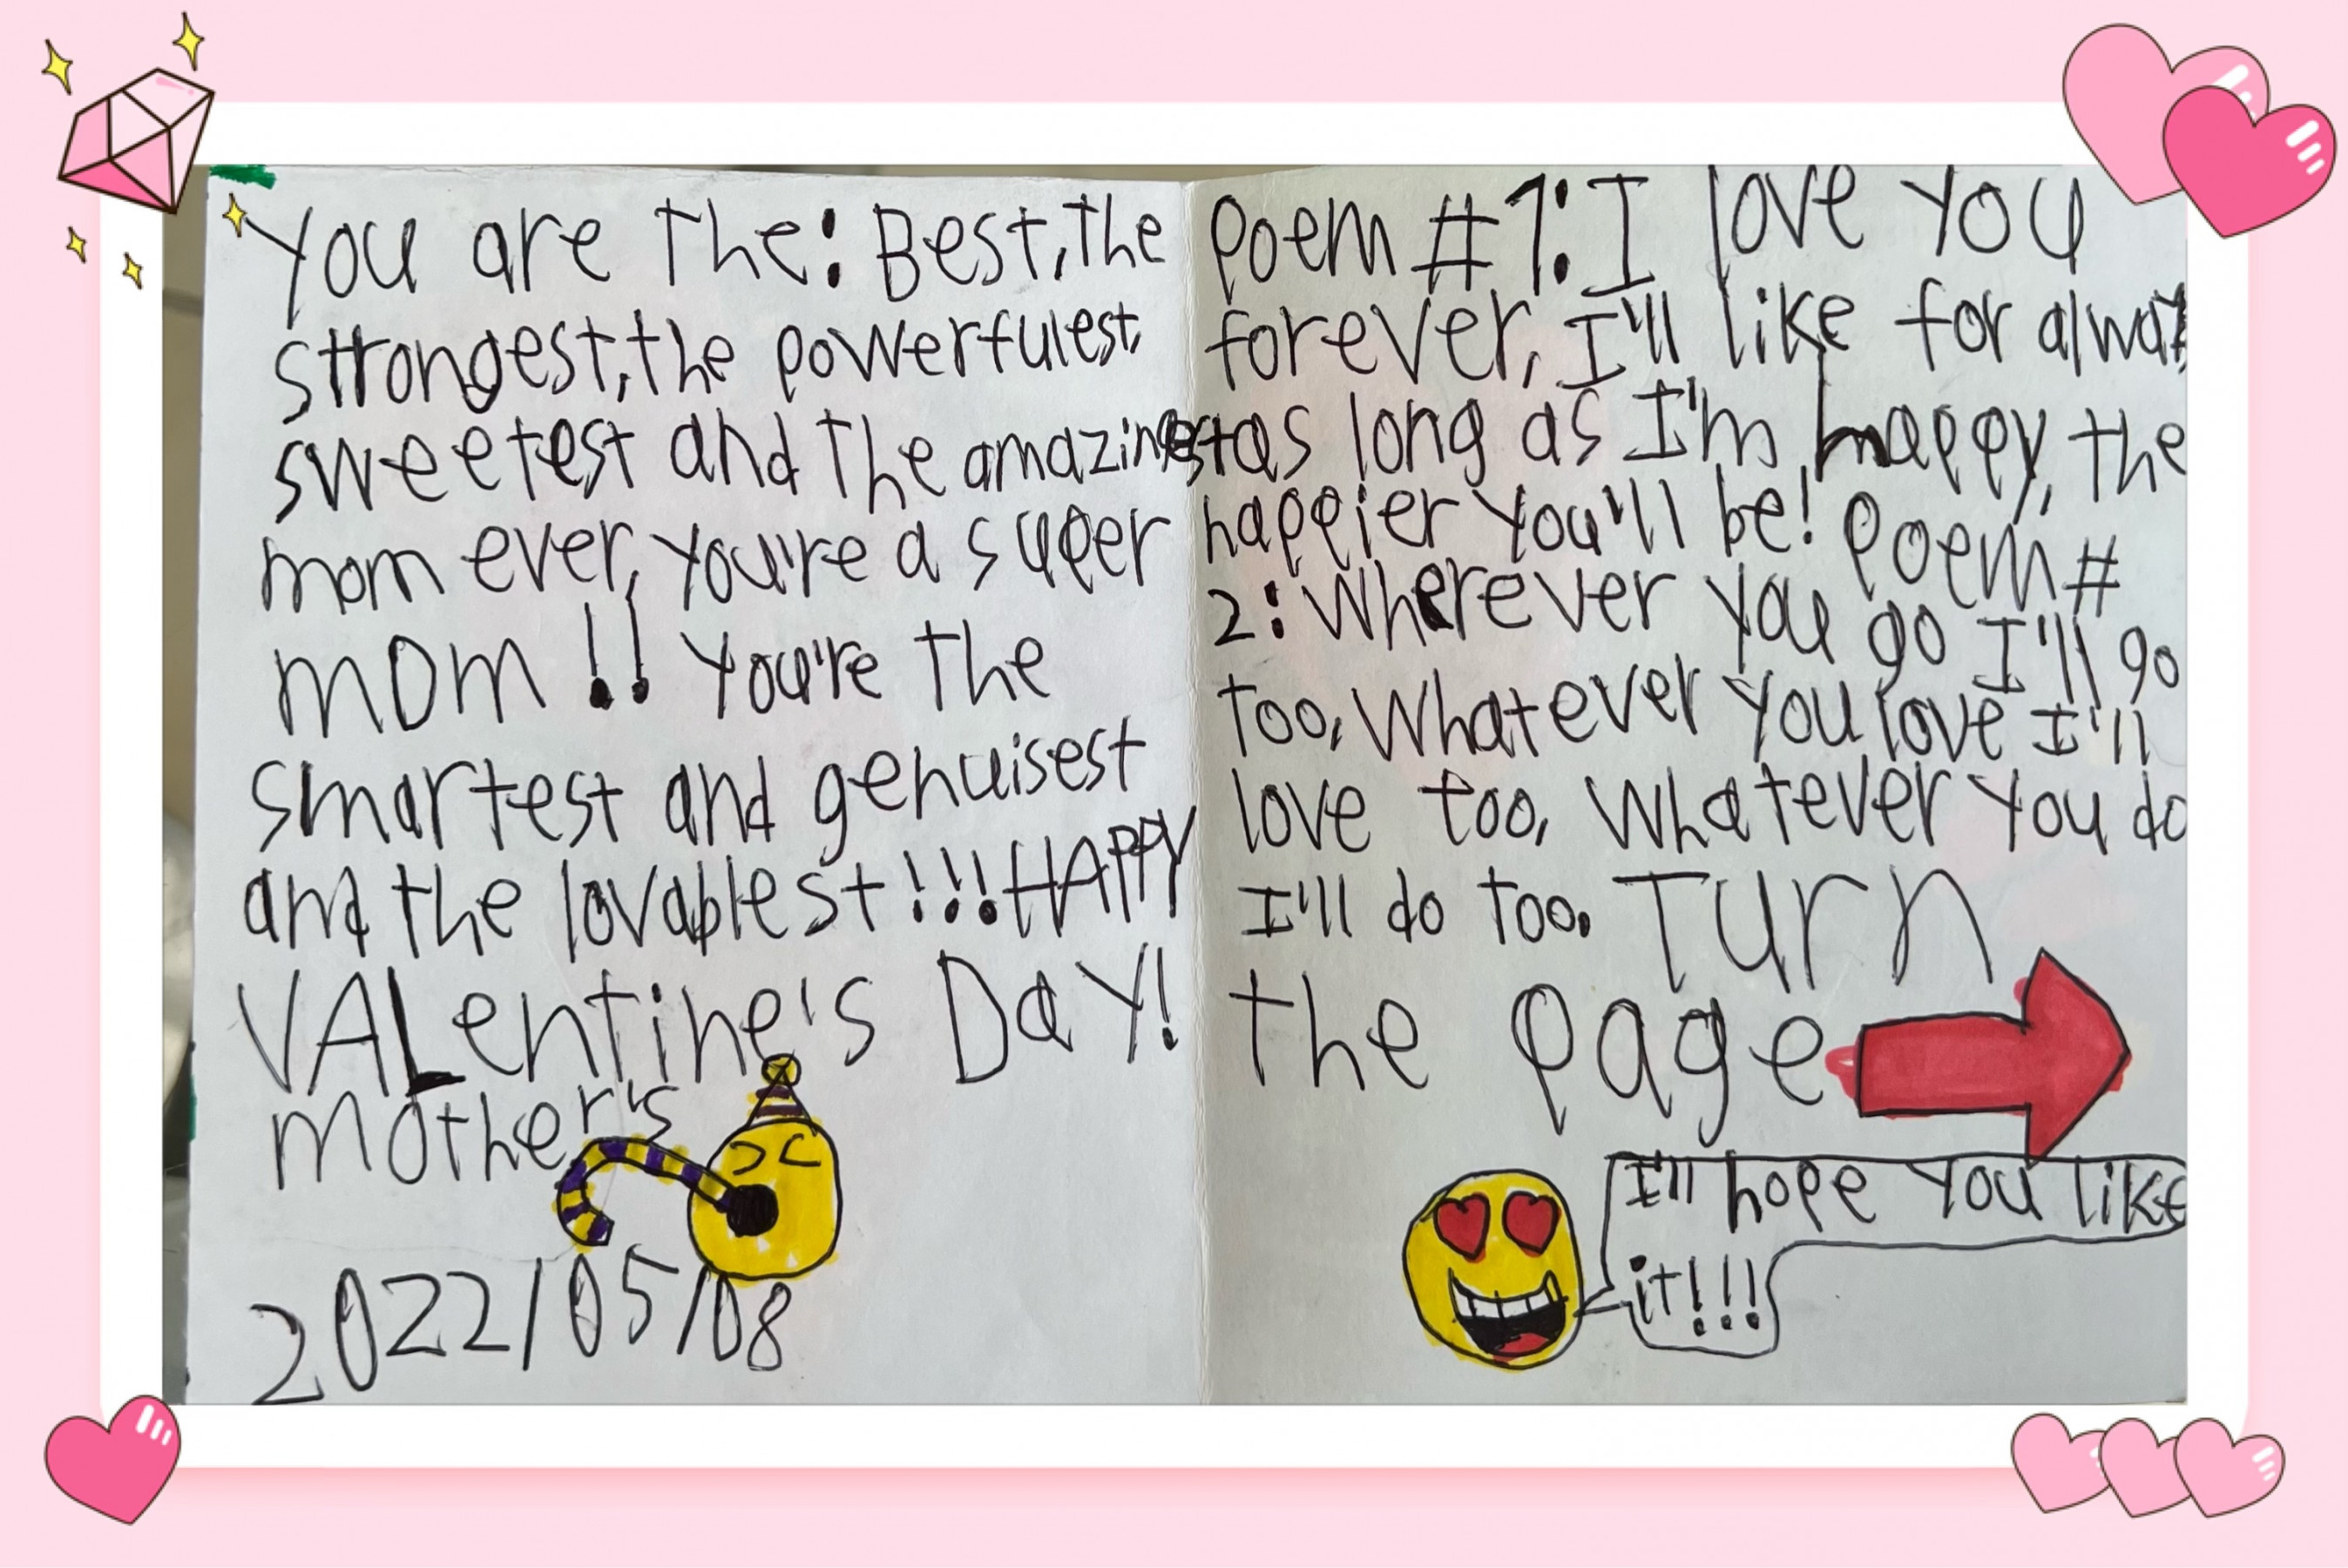 You are the: Best, the
strongest, the powerfulest,
sweetest and the amazingest
mom ever, you're a super
mom!! You're the
smartest and genuisest
and the lovablest!!! HAPPY
VALentine's Day!
mother's
2022/05/08
Poem #1: I love you
forever, I'll like for alway
as long as I'm happy, the
happier you'll be! Poem #
2: Wherever you go I'll go
too, Whatever you love I'll
love too, Whatever you do
I'll do too. Turn
the page
I'll hope you like
it!!!